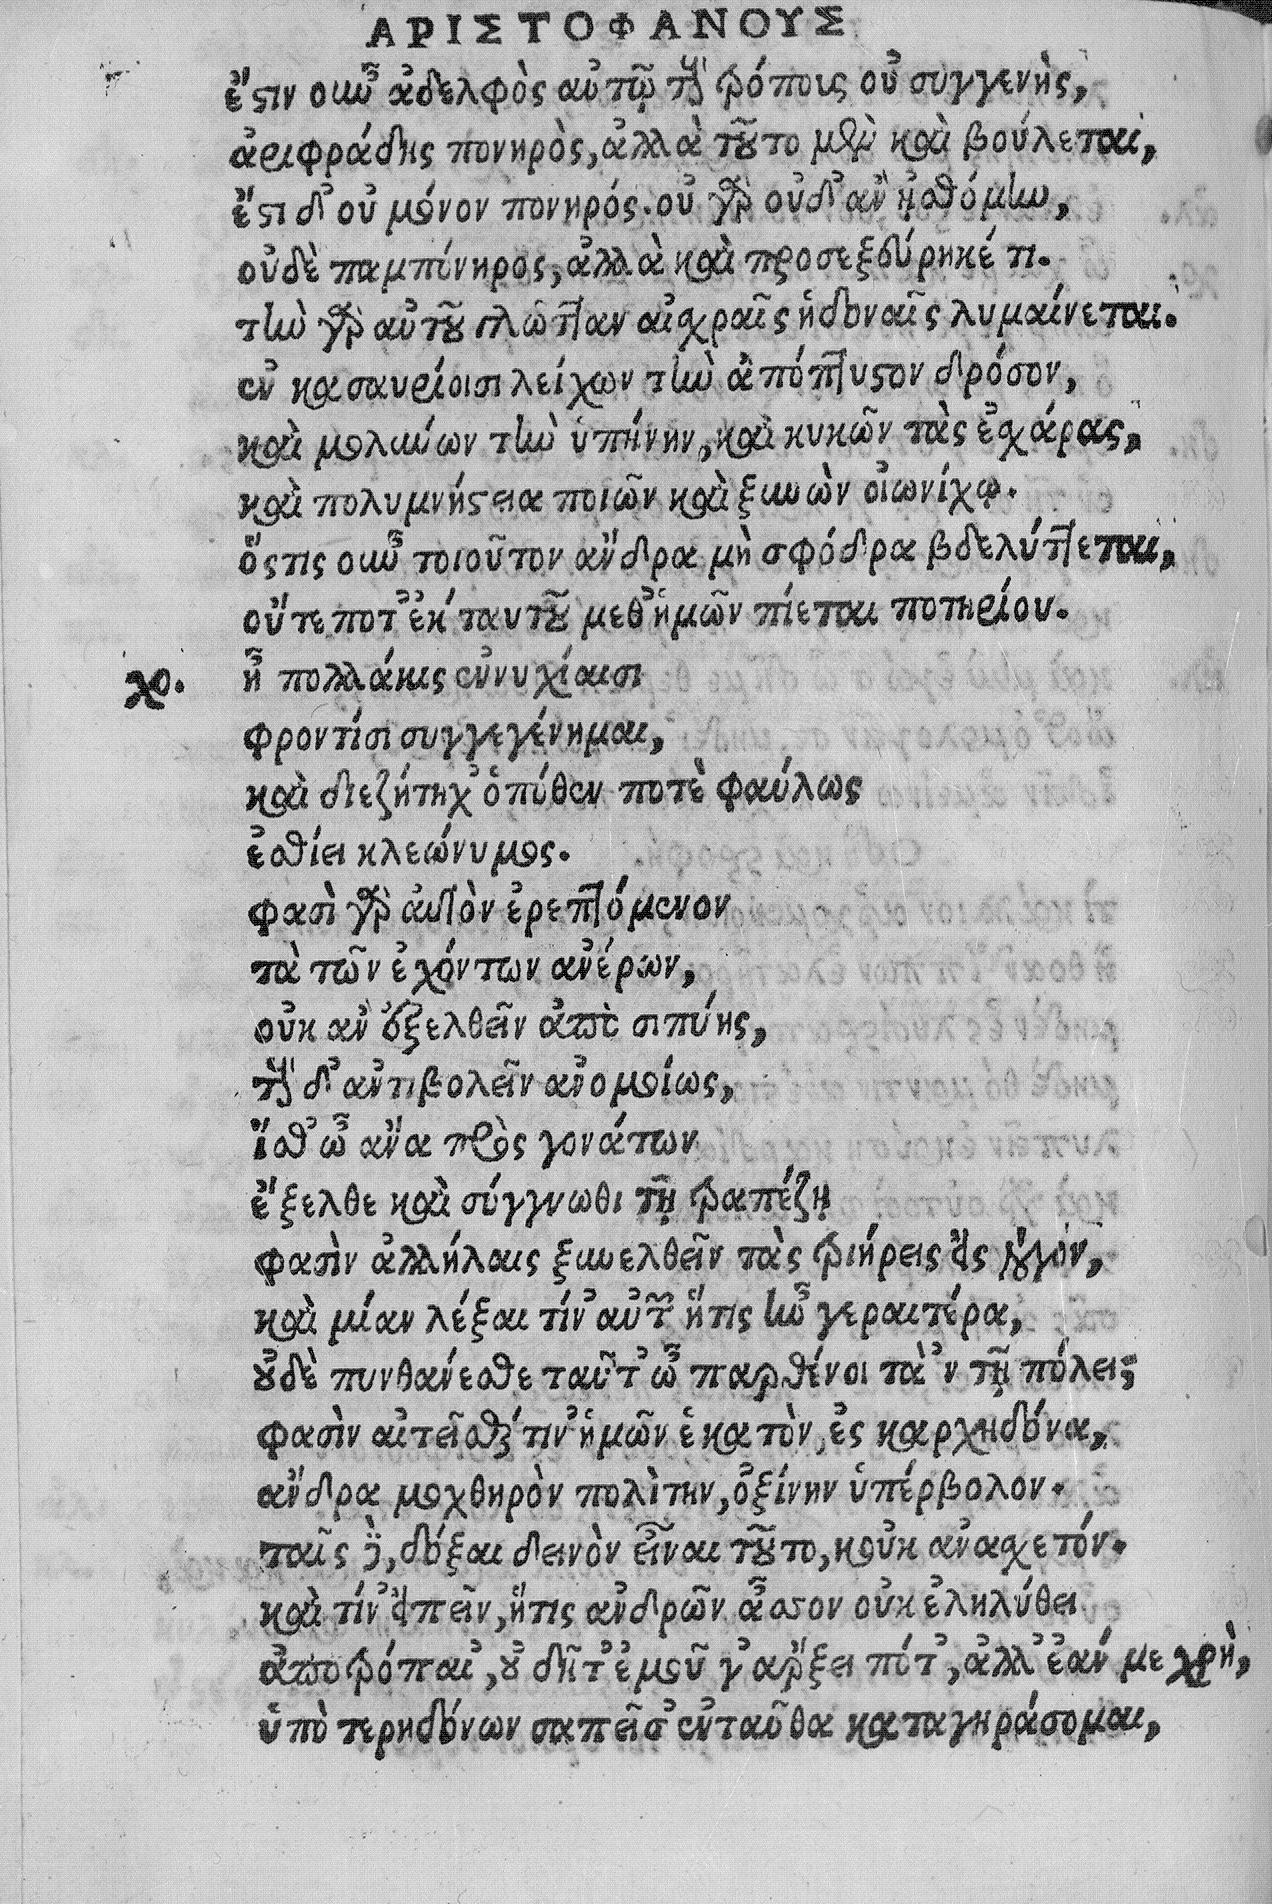 ΑΡΙΣΤΟΦΑΝΟΥΣ
ἔστιν οὖν ἀδελφὸς αὐτῷ τοὺς τρόπους οὐ συγγενὴς,
ἀριφράδης πονηρὸς, ἀλλὰ τοῦτο μὲν καὶ βούλεται,
ἔστι δ' οὐ μόνον πονηρός. οὐ γὰρ οὐδ' ἂν ᾐσθόμην,
οὐδὲ παμπόνηρος, ἀλλὰ καὶ προσεξεύρηκέ τι.
τὴν γὰρ αὐτοῦ γλῶτταν αἰσχραῖς ἡδοναῖς λυμαίνεται.
ἐν κασαυρίοισι λείχων τὴν ἀπόπτυστον δρόσον,
καὶ μολύνων τὴν ὑπήνην, καὶ κυκῶν τὰς ἐσχάρας,
καὶ πολυμνήστεια ποιῶν καὶ ξυνὼν οἰωνίχῳ.
ὅστις οὖν τοιοῦτον ἄνδρα μὴ σφόδρα βδελύττεται,
οὔτε ποτ' ἐκ ταυτοῦ μεθ' ἡμῶν πίεται ποτηρίου.
χο. ἦ πολλάκις ἐννυχίαισι
φροντίσι συγγεγένημαι,
καὶ διεζήτηχ' ὁπόθεν ποτὲ φαύλως
ἐσθίει κλεώνυμος.
φασὶ γὰρ αὐτὸν ἐρεπτόμενον
τὰ τῶν ἐχόντων ἀνέρων,
οὐκ ἂν ἐξελθεῖν ἀπὸ σιπύης,
τοὺς δ' ἀντιβολεῖν ἀνομοίως,
ἴθ' ὦ ἄνα πρὸς γονάτων
ἔξελθε καὶ σύγγνωθι τῇ τραπέζῃ
φασὶν ἀλλήλαις ξυνελθεῖν τὰς τριήρεις εἰς λόγον,
καὶ μίαν λέξαι τίν' αὐτῶν ἥτις ἦν γεραιτέρα,
οὐδὲ πυνθάνεσθε ταῦτ' ὦ παρθένοι τὰ 'ν τῇ πόλει;
φασὶν αἰτεῖσθαί τιν' ἡμῶν ἑκατὸν, ἐς καρχηδόνα,
ἄνδρα μοχθηρὸν πολίτην, ὀξίνην ὑπέρβολον.
ταῖς δὲ, δόξαι δεινὸν εἶναι τοῦτο, κοὐκ ἀνασχετόν.
καὶ τίν' εἰπεῖν, ἥτις ἀνδρῶν ἆσσον οὐκ ἐληλύθει
ἀποτρόπαι', οὐ δῆτ' ἐμοῦ γ' ἄρξει πότ', ἀλλ' ἐάν με χρὴ,
ὑπὸ τερηδόνων σαπεῖσ' ἐνταῦθα καταγηράσομαι,